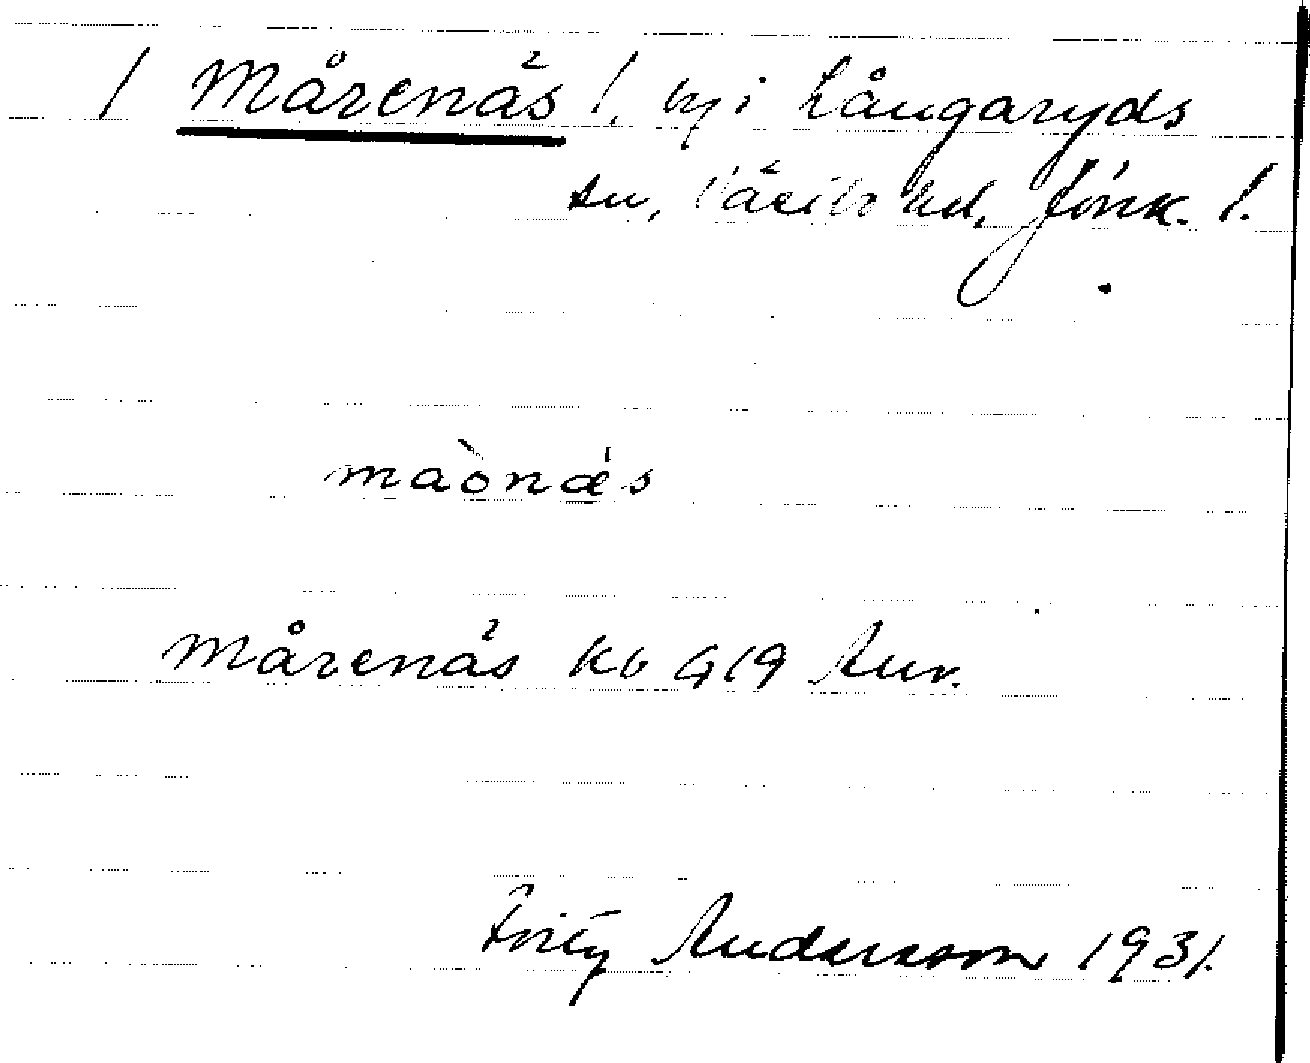 / Mårenäs /, by i Långaryds
sn, Västbo hd, Jönk. l.
maònǽs
Mårenäs Kb G 19 Anv.
Fritz Andersson 1931.